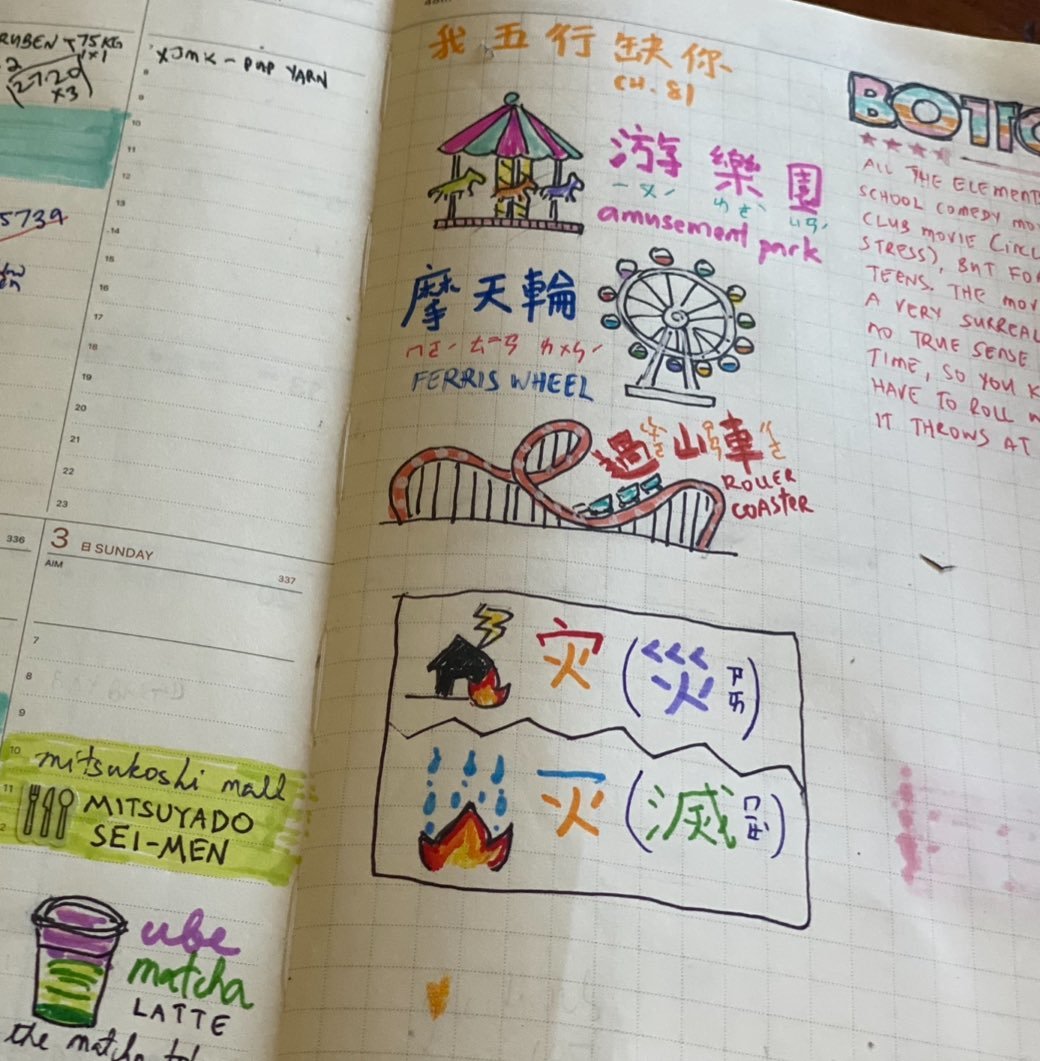 RUBEN → 75 KG
x1
2
27.20
x3
5739
XJMK - PNP YARN
9
10
11
12
13
14
15
16
17
18
19
20
21
22
23
336
3 日 SUNDAY
337
AIM
7
8
9
10
11
mitsukoshi mall
MITSUYADO
SEI-MEN
ube
matcha
LATTE
the matcha
我五行缺你
CH. 81
游樂園
ㄧㄡˊ ㄌㄜˋ ㄩㄢˊ
amusement park
摩天輪
ㄇㄛˊ ㄊㄧㄢ ㄌㄨㄣˊ
FERRIS WHEEL
過山車
ROLLER
COASTER
灾 (災 ㄗㄞ)
灭 (滅 ㄇㄧㄝˋ)
ALL THE
SCHOOL COMEDY
CLUB MOVIE
STRESS), BUT
TEENS. THE
A VERY SURREAL
NO TRUE SENSE
TIME, SO YOU
HAVE TO ROLL
IT THROWS AT